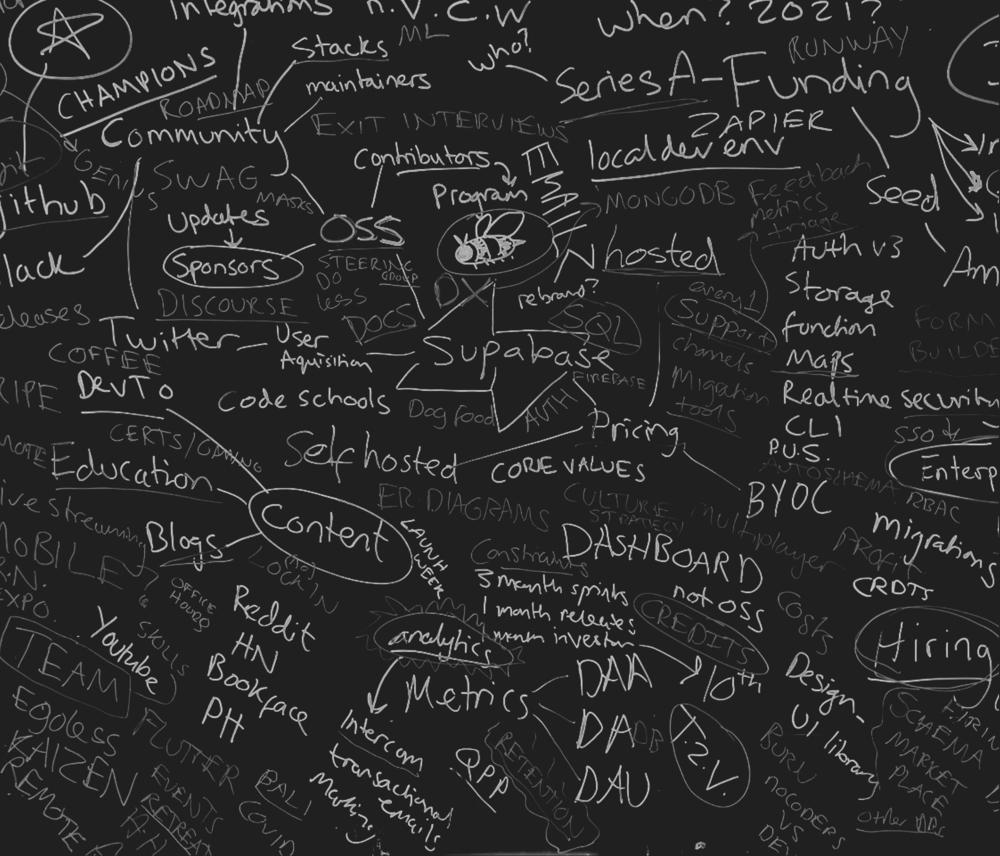 Integrations
N.V.C.W
when? 2021?
Stacks
ML
who?
RUNWAY
CHAMPIONS
maintainers
Series A-Funding
ROADMAP
Community
EXIT INTERVIEWS
ZAPIER
Contributors
local dev env
SWAG
Program
EMAIL
MONGODB
Feedback
Metrics
triage
Seed
MASKS
ithub
Updates
OSS
lack
Sponsors
STEERING
GROUP
Do
less
DX
N hosted
Auth v3
Storage
function
Maps
Realtime security
CLI
P.U.S.
rebrand?
every 1
Support
channels
Migration
tools
eleases
DISCOURSE
DOCS
SQL
Twitter
User
Aquisition
Supabase
FIREBASE
COFFEE
DevTo
Code schools
Dog Food
AUTH
Pricing
SSO
CERTS/
Education
Self hosted
CORE VALUES
BYOC
AUTOSCHEMA
RBAC
ER DIAGRAMS
CULTURE
STRATEGY
Multiplayer
ive streaming
Blogs
Content
LAUNCH
WEEK
DASHBOARD
migrations
PROFIT
(No)
LOCK IN
MOBILE
R.N.
EXPO
OFFICE
HOURS
3 month sprints
1 month releases
not OSS
CREDITS
CRDTS
Costs
Reddit
HN
Bookface
PH
analytics
Hiring
TEAM
Youtube
SKILLS
Metrics
DAA
DADB
DAU
10th
T.2.V.
Design
UI library
Egoless
KAIZEN
REMOTE
FLUTTER
EVENTS
RETREAT
BALI
COVID
Intercom
transactional
emails
QPP
RETENTION
BURN
NOCODERS
VS
SCHEMA
MARKET
PLACE